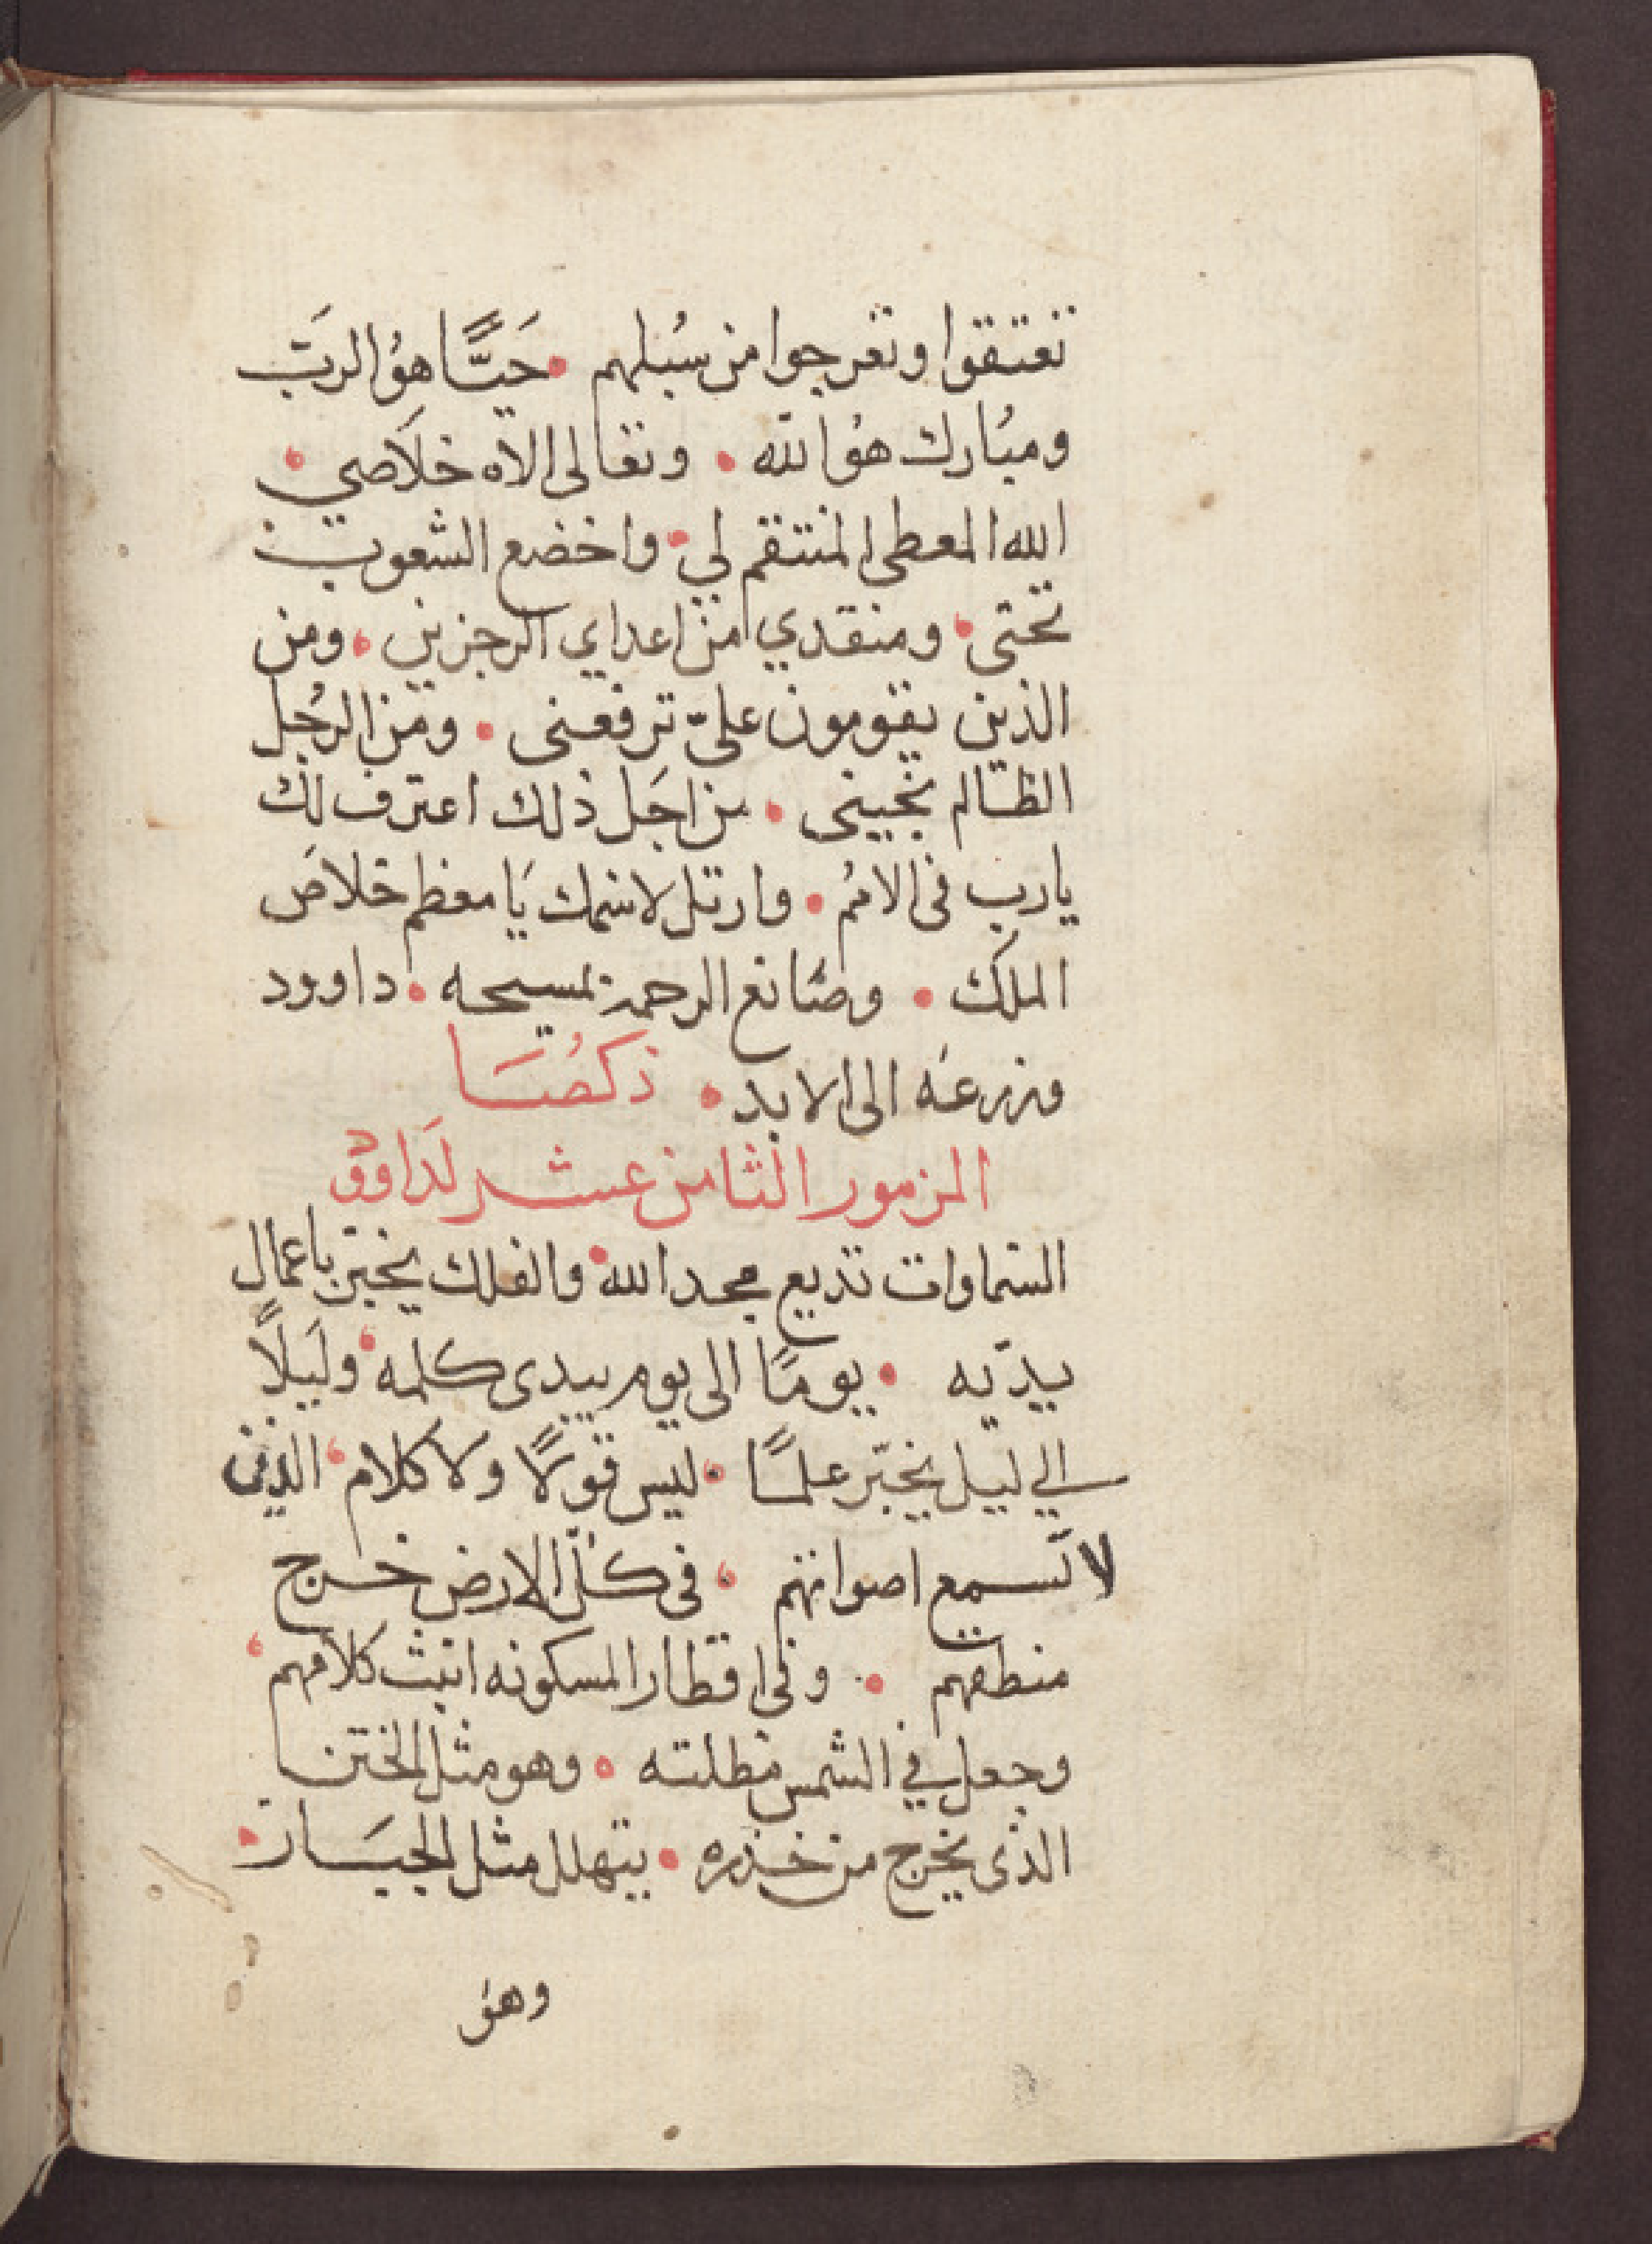 تعتقوا وتعرجوا من سُبلهم • حَيًّا هوُ الربّ
ومبُارك هوُ اللّه • وتعالى الاه خلَاصي •
الله المعطى المنتقم لي • واخضع الشعوب
تحتى • ومنقدي من اعداي الرجزين • ومن
الذين يقومون علىّ ترفعنى • ومن الرجُل
الظالم نجينى • من اجَل ذلك اعترف لك
يارب فى الامُم • وارتل لاسمك يَا معظم خلاصَ
الملك • وصَانع الرحمة لمسيحه • داوود
وزرعَه الى الابد • ذكصُا
المزمور الثامن عشر لدَاوود
السماوات تديع مجد الله • والفلك يخبّر باعمال
يديّه • يومًا الى يوم يبدى كلمه • ولَيلًا
الي ليل يخبّر علمًا • ليس قولًا ولا كلام • الذين
لا تسمع اصواتهم • فى كلّ الارض خرج
منطقهم • وفى اقطار المسكونه انبث كلامهم •
وجعل في الشمس مظلته • وهو مثل الختن
الذى يخرج من خذره • يتهلل مثل الجبَار •
وهو